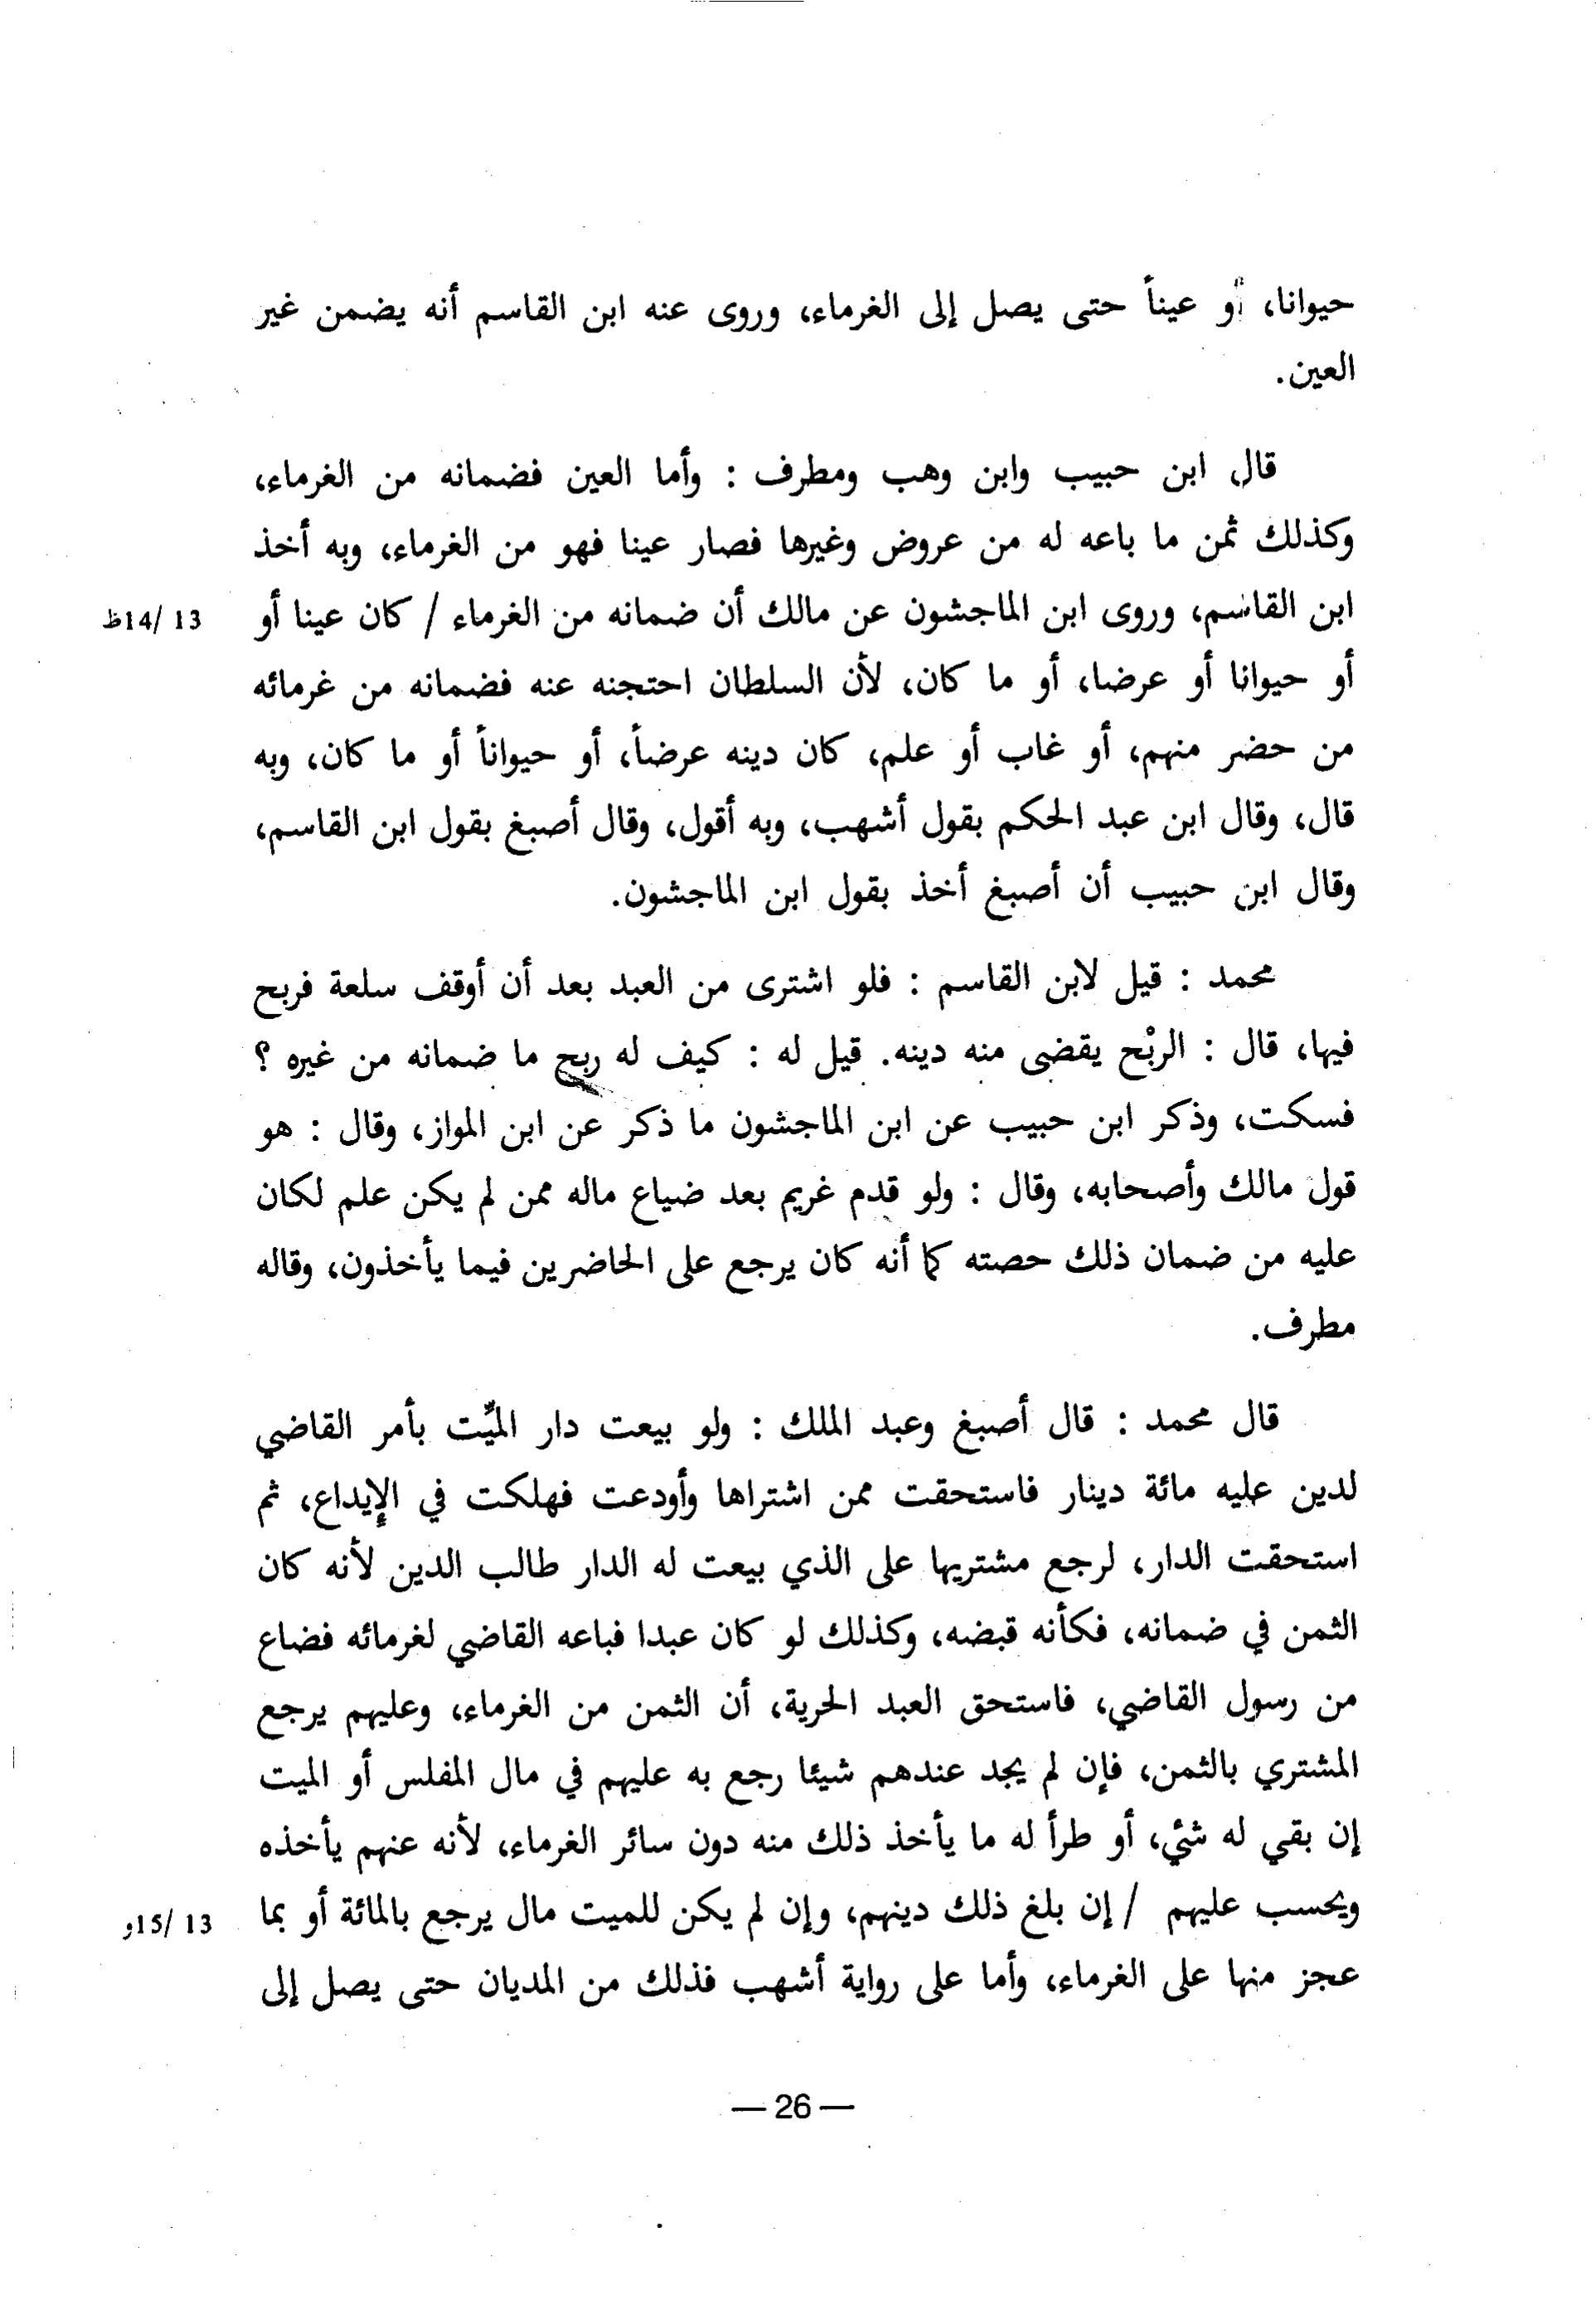 حيوانا، أو عيناً حتى يصل إلى الغرماء، وروى عنه ابن القاسم أنه يضمن غير
العين.
قال ابن حبيب وابن وهب ومطرف : وأما العين فضمانه من الغرماء،
وكذلك ثمن ما باعه له من عروض وغيرها فصار عينا فهو من الغرماء، وبه أخذ
ابن القاسم، وروى ابن الماجشون عن مالك أن ضمانه من الغرماء / كان عينا أو 13 /14ظ
أو حيوانا أو عرضا، أو ما كان، لأن السلطان احتجنه عنه فضمانه من غرمائه
من حضر منهم، أو غاب أو علم، كان دينه عرضاً، أو حيواناً أو ما كان، وبه
قال، وقال ابن عبد الحكم بقول أشهب، وبه أقول، وقال أصبغ بقول ابن القاسم،
وقال ابن حبيب أن أصبغ أخذ بقول ابن الماجشون.
محمد : قيل لابن القاسم : فلو اشترى من العبد بعد أن أوقف سلعة فربح
فيها، قال : الربْح يقضى منه دينه. قيل له : كيف له ربح ما ضمانه من غيره ؟
فسكت، وذكر ابن حبيب عن ابن الماجشون ما ذكر عن ابن المواز، وقال : هو
قول مالك وأصحابه، وقال : ولو قدم غريم بعد ضياع ماله ممن لم يكن علم لكان
عليه من ضمان ذلك حصته كما أنه كان يرجع على الحاضرين فيما يأخذون، وقاله
مطرف.
قال محمد : قال أصبغ وعبد الملك : ولو بيعت دار الميِّت بأمر القاضي
لدين عليه مائة دينار فاستحقت ممن اشتراها وأودعت فهلكت في الإيداع، ثم
استحقت الدار، لرجع مشتريها على الذي بيعت له الدار طالب الدين لأنه كان
الثمن في ضمانه، فكأنه قبضه، وكذلك لو كان عبدا فباعه القاضي لغرمائه فضاع
من رسول القاضي، فاستحق العبد الحرية، أن الثمن من الغرماء، وعليهم يرجع
المشتري بالثمن، فإن لم يجد عندهم شيئا رجع به عليهم في مال المفلس أو الميت
إن بقي له شئ، أو طرأ له ما يأخذ ذلك منه دون سائر الغرماء، لأنه عنهم يأخذه
ويحسب عليهم / إن بلغ ذلك دينهم، وإن لم يكن للميت مال يرجع بالمائة أو بما 13 /15و
عجز منها على الغرماء، وأما على رواية أشهب فذلك من المديان حتى يصل إلى
— 26 —